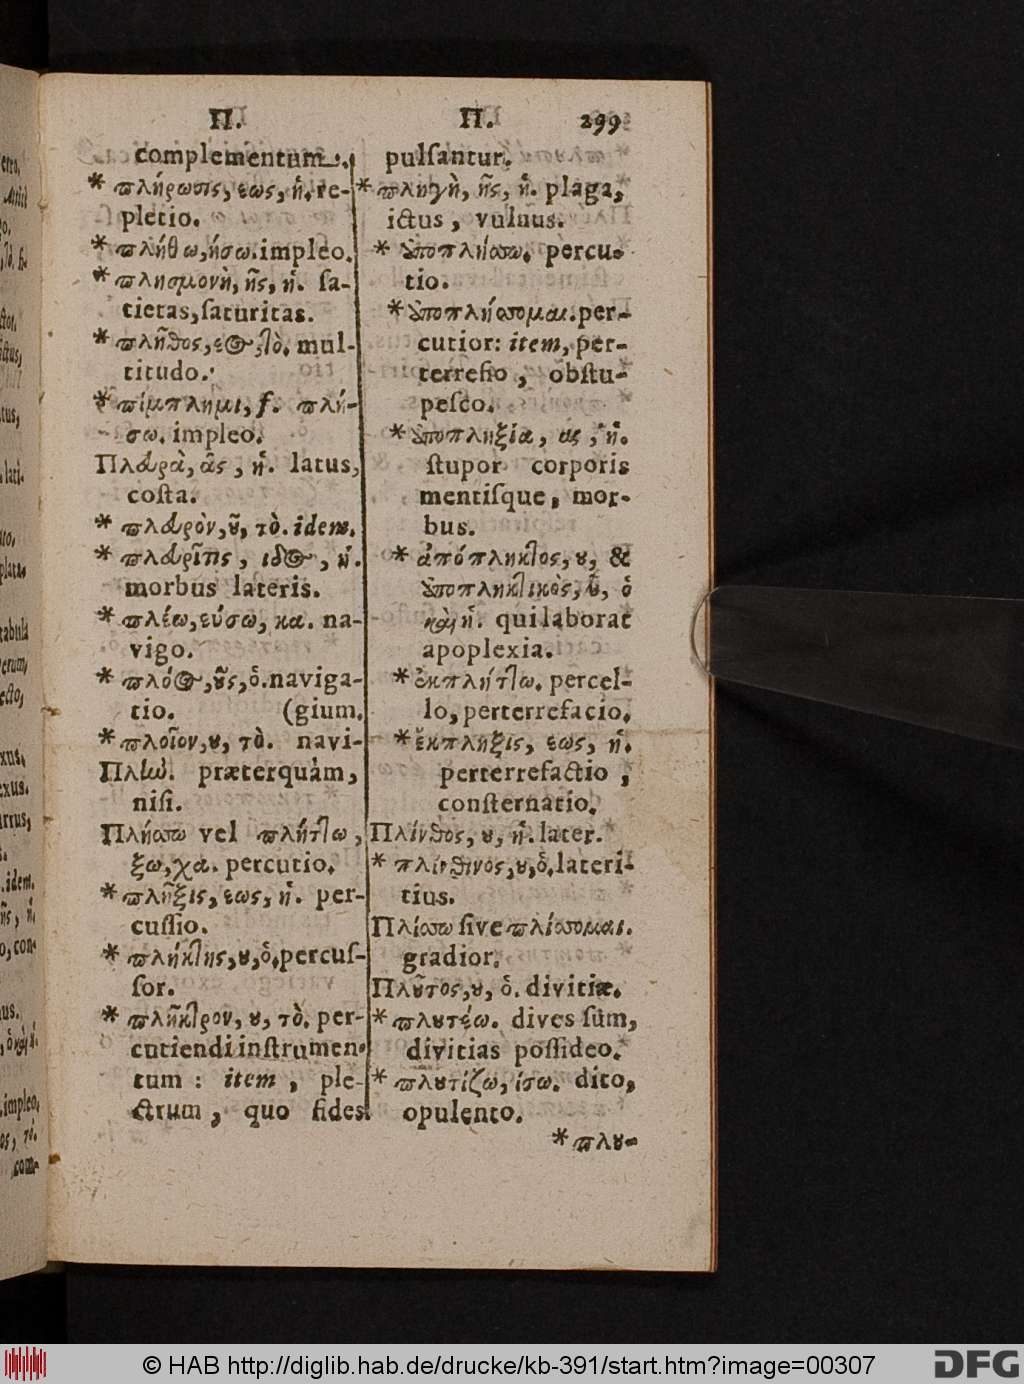 Π. Π. 299
complementum.
* πλήρωσις, εως, ἡ. re-
pletio.
* πλήθω, ήσω. impleo.
* πλησμονὴ, ῆς, ἡ. ſa-
tietas, ſaturitas.
* πλῆθος, εος, τὸ. mul-
titudo.
* πίμπλημι, f. πλή-
σω. impleo.
Πλευρὰ, ᾶς, ἡ. latus,
coſta.
* πλευρὸν, ȣ̃, τὸ. idem.
* πλευρῖτις, ιδος, ἡ.
morbus lateris.
* πλέω, εύσω, κα. na-
vigo.
* πλόος, ȣ̃ς, ὁ. naviga-
tio. (gium.
* πλοῖον, ȣ, τὸ. navi-
Πλίω. præterquàm,
niſi.
Πλήσσω vel πλήττω,
ξω, χα. percutio.
* πλῆξις, εως, ἡ. per-
cuſſio.
* πλήκτης, ȣ, ὁ. percuſ-
ſor.
* πλῆκτρον, ȣ, τὸ. per-
cutiendi inſtrumen-
tum: item, ple-
ctrum, quo fides
pulſantur.
* πληγὴ, ῆς, ἡ. plaga,
ictus, vulnus.
* ἀποπλήσσω. percu-
tio.
* ἀποπλήσσομαι. per-
cutior: item, per-
terrefio, obſtu-
peſco.
* ἀποπληξία, ας, ἡ.
ſtupor corporis
mentiſque, mor-
bus.
* ἀπόπληκτος, ȣ, &
ἀποπληκτικὸς, ȣ̃, ὁ
καὶ ἡ. qui laborat
apoplexia.
* ἐκπλήττω. percel-
lo, perterrefacio.
* ἔκπληξις, εως, ἡ.
perterrefactio,
conſternatio.
Πλίνθος, ȣ, ἡ. later.
* πλίνθινος, ȣ, ὁ. lateri-
tius.
Πλίσσω ſive πλίσσομαι.
gradior.
Πλȣ̃τος, ȣ, ὁ. divitiæ.
* πλȣτέω. dives ſum,
divitias poſſideo.
* πλȣτίζω, ίσω. dito,
opulento.
* πλȣ-
© HAB http://diglib.hab.de/drucke/kb-391/start.htm?image=00307
DFG